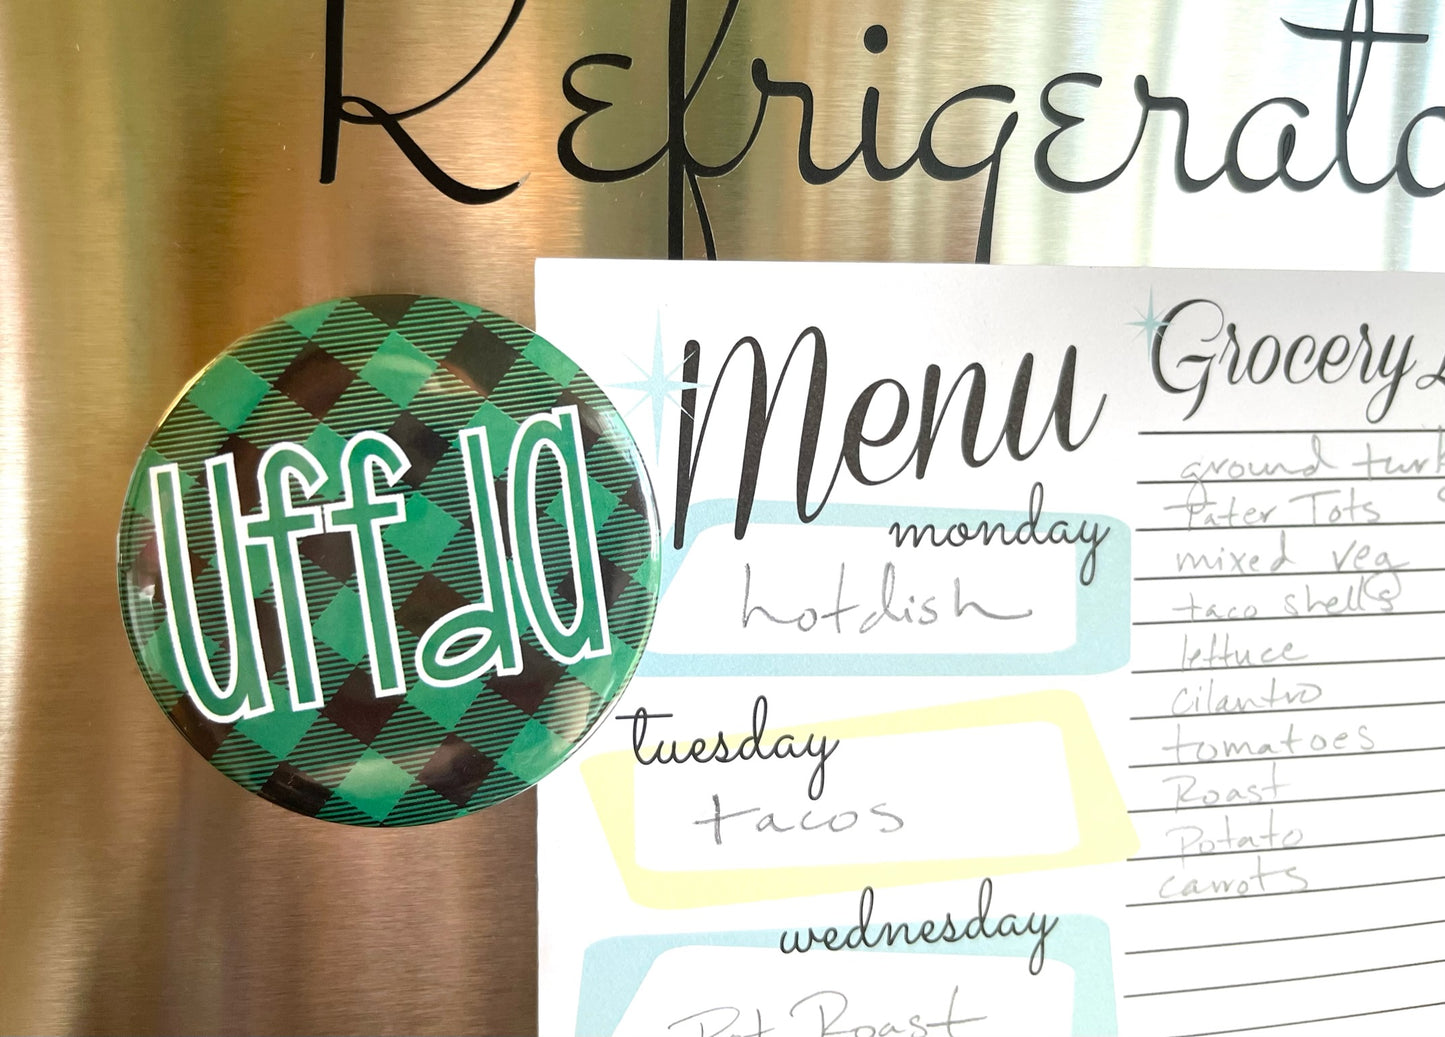 Refrigerato
uff da
Menu
monday
hotdish
tuesday
tacos
wednesday
Pot Roast
Grocery
ground turk
Tater Tots
mixed veg
taco shells
lettuce
cilantro
tomatoes
Roast
Potato
carrots